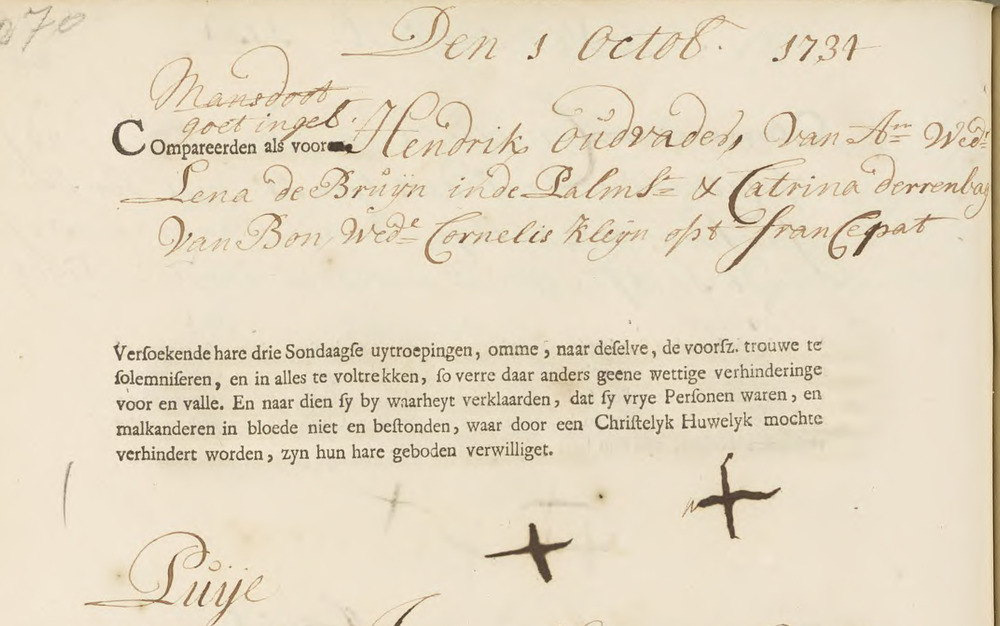 070
Den 1 Octob: 1734
Mansdoot
goet ingel.
COmpareerden als vooren. Hendrik oudvader, Van Am Wedr
Lena de Bruijn in de Palmst & Catrina derrenbag
Van Bon, Wede Cornelis Kleijn opt franSepat
Versoekende hare drie Sondaagse uytroepingen, omme, naar deselve, de voorsz. trouwe te
solemniseren, en in alles te voltrekken, so verre daar anders geene wettige verhinderinge
voor en valle. En naar dien sy by waarheyt verklaarden, dat sy vrye Personen waren, en
malkanderen in bloede niet en bestonden, waar door een Christelyk Huwelyk mochte
verhindert worden, zyn hun hare geboden verwilliget.
Puije